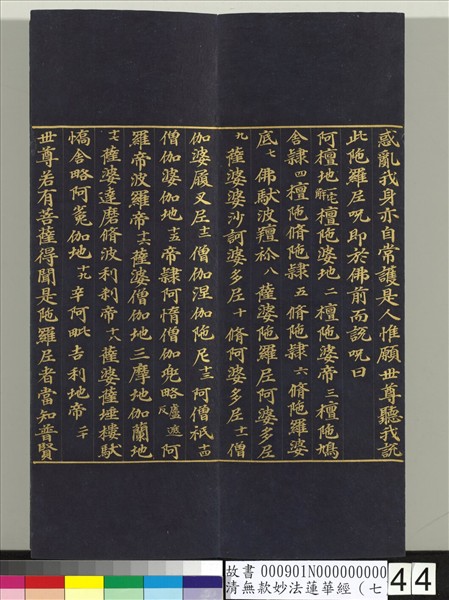 惑亂我身亦自常護是人惟願世尊聽我說
此陁羅尼呪即於佛前而說呪曰
阿檀地一檀陁婆地二檀陁婆帝三檀陁鳩
舍隸四檀陁脩陁隸五脩陁隸六脩陁羅婆
底七佛䭾波羶祢八薩婆陁羅尼阿婆多尼
九薩婆婆沙訶婆多尼十脩阿婆多尼十一僧
伽婆履叉尼十二僧伽涅伽陁尼十三阿僧祇十四
僧伽婆伽地十五帝隸阿惰僧伽兜略盧遮反阿
羅帝波羅帝十六薩婆僧伽地三摩地伽蘭地
十七薩婆達磨脩波利剎帝十八薩婆薩埵樓䭾
憍舍略阿㝹伽地十九辛阿毗吉利地帝二十
世尊若有菩薩得聞是陁羅尼者當知普賢
故書 000901N000000000
清無款妙法蓮華經（七
44